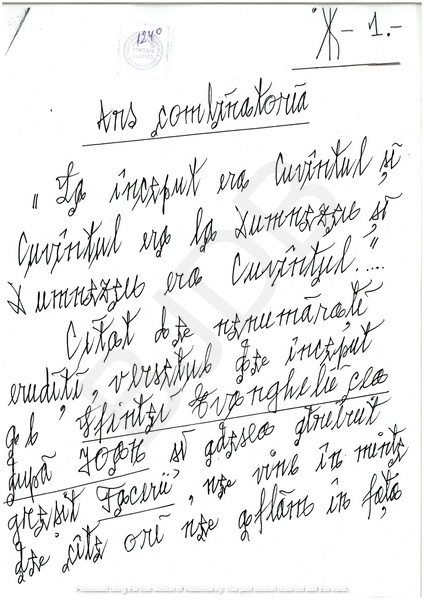 124⁰
Ж - 1.-
Ars combinatoria
„La început era Cuvîntul și
Cuvîntul era la Dumnezeu și
Dumnezeu era Cuvîntul."....
Citat de nenumărați
erudiți, versetul de început
al Sfintei Evanghelii cea
după Ioan și adesea atribuit
greșit Facerii, ne vine în minte
de cîte ori ne aflăm în fața
BJDB